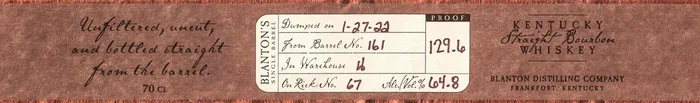 Unfiltered, uncut,
and bottled straight
from the barrel.
70 CL
BLANTON'S
SINGLE BARREL
Dumped on 1-27-22
From Barrel No. 161
In Warehouse H
On Rick No. 67 Alc/Vol.% 64.8
PROOF
129.6
KENTUCKY
Straight Bourbon
WHISKEY
BLANTON DISTILLING COMPANY
FRANKFORT, KENTUCKY